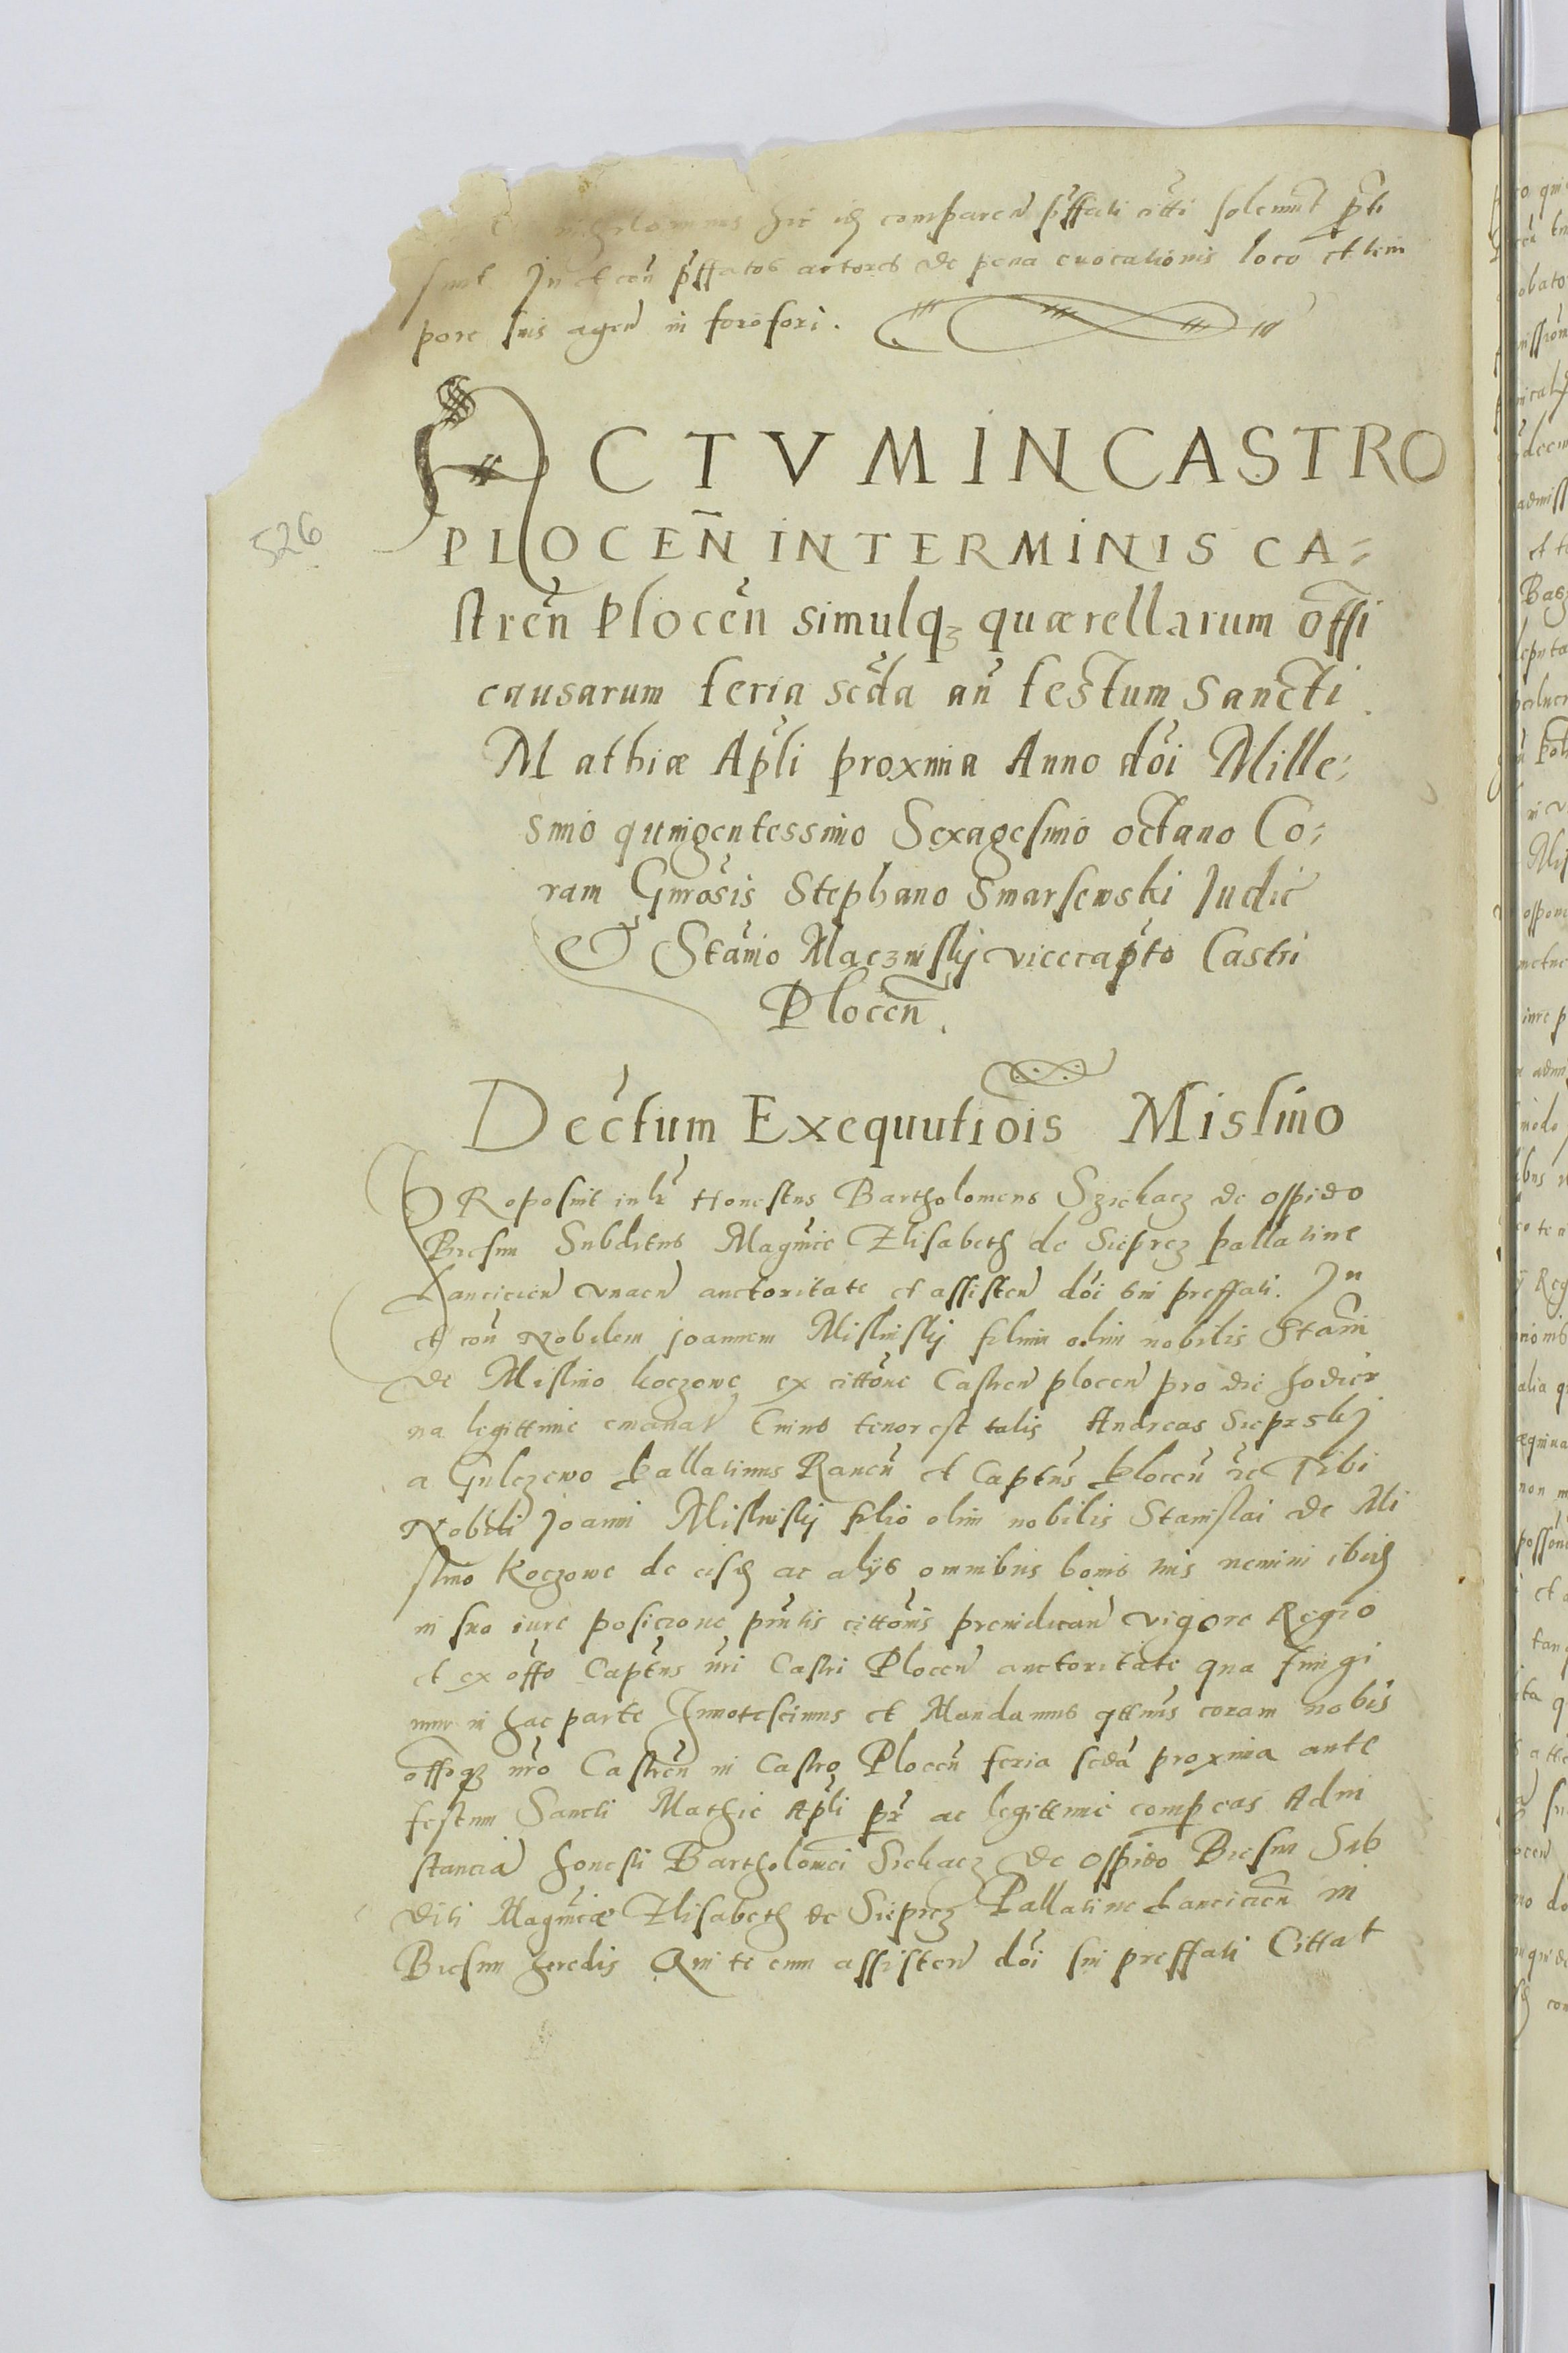 hic comparen pffati citti solemnt pti
sunt In et con pffatos actores de pena evocationis loco et tem
pore suis agen in foro fori.
ACTVM IN CASTRO
526
PLOCEN̄ IN TERMINIS CA=
streñ Ploceñ simulqȝ quærellarum offi
causarum feria scda añ festum Sancti
Mathiæ Apli proxima Anno doi Mille=
simo quingentessimo Sexagesimo octauo Co=
ram Gnrosis Stephano Smarsewski Judic
Et Stanio Maczinskij vicecapto Castri
Plocen̄.
Dectum Exequutiois Mislino
PRoposuit in Honestus Bartholomeus Sziekacz de oppido
Biesun Subditus Magnice Elisabeth de Sieprcz pallatine
Lancicien vnacn auctoritate et assisten doi sui preffati. In
et con Nobilem joannem Mislinskij filium olim nobilis Stani
de Mislino koczowe ex cittone Castren plocen pro die hodier
na legittime emanat Cuius tenor est talis Andreas Sieprskj
a Gulczewo pallatinus Raucn et Captus plocen Tibi
Nobili Joanni Mislinskij filio olim nobilis Stanislai de Mi
slino Koczowe de eisd ac alijs omnibus bonis tuis nemini ibid
in suo iure posicione pntis cittonis preiudican vigore Regio
et ex offo Captus nri Castri Plocen auctoritate qua fungi
mur in hac parte Innotescimus et Mandamus qtnus coram nobis
offoqȝ nro Castren in Castro Plocen feria scda proxima ante
festum Sancti Mathie Apli pr ac legittime compeas Ad in
stancia honesti Bartholomei Siekacz de oppido Biesun Sub
diti Magnicæ Elisabeth de Sieprcz Pallatine Lancicien in
Biesun heredis Qui te cum assisten doi sui preffati Cittat